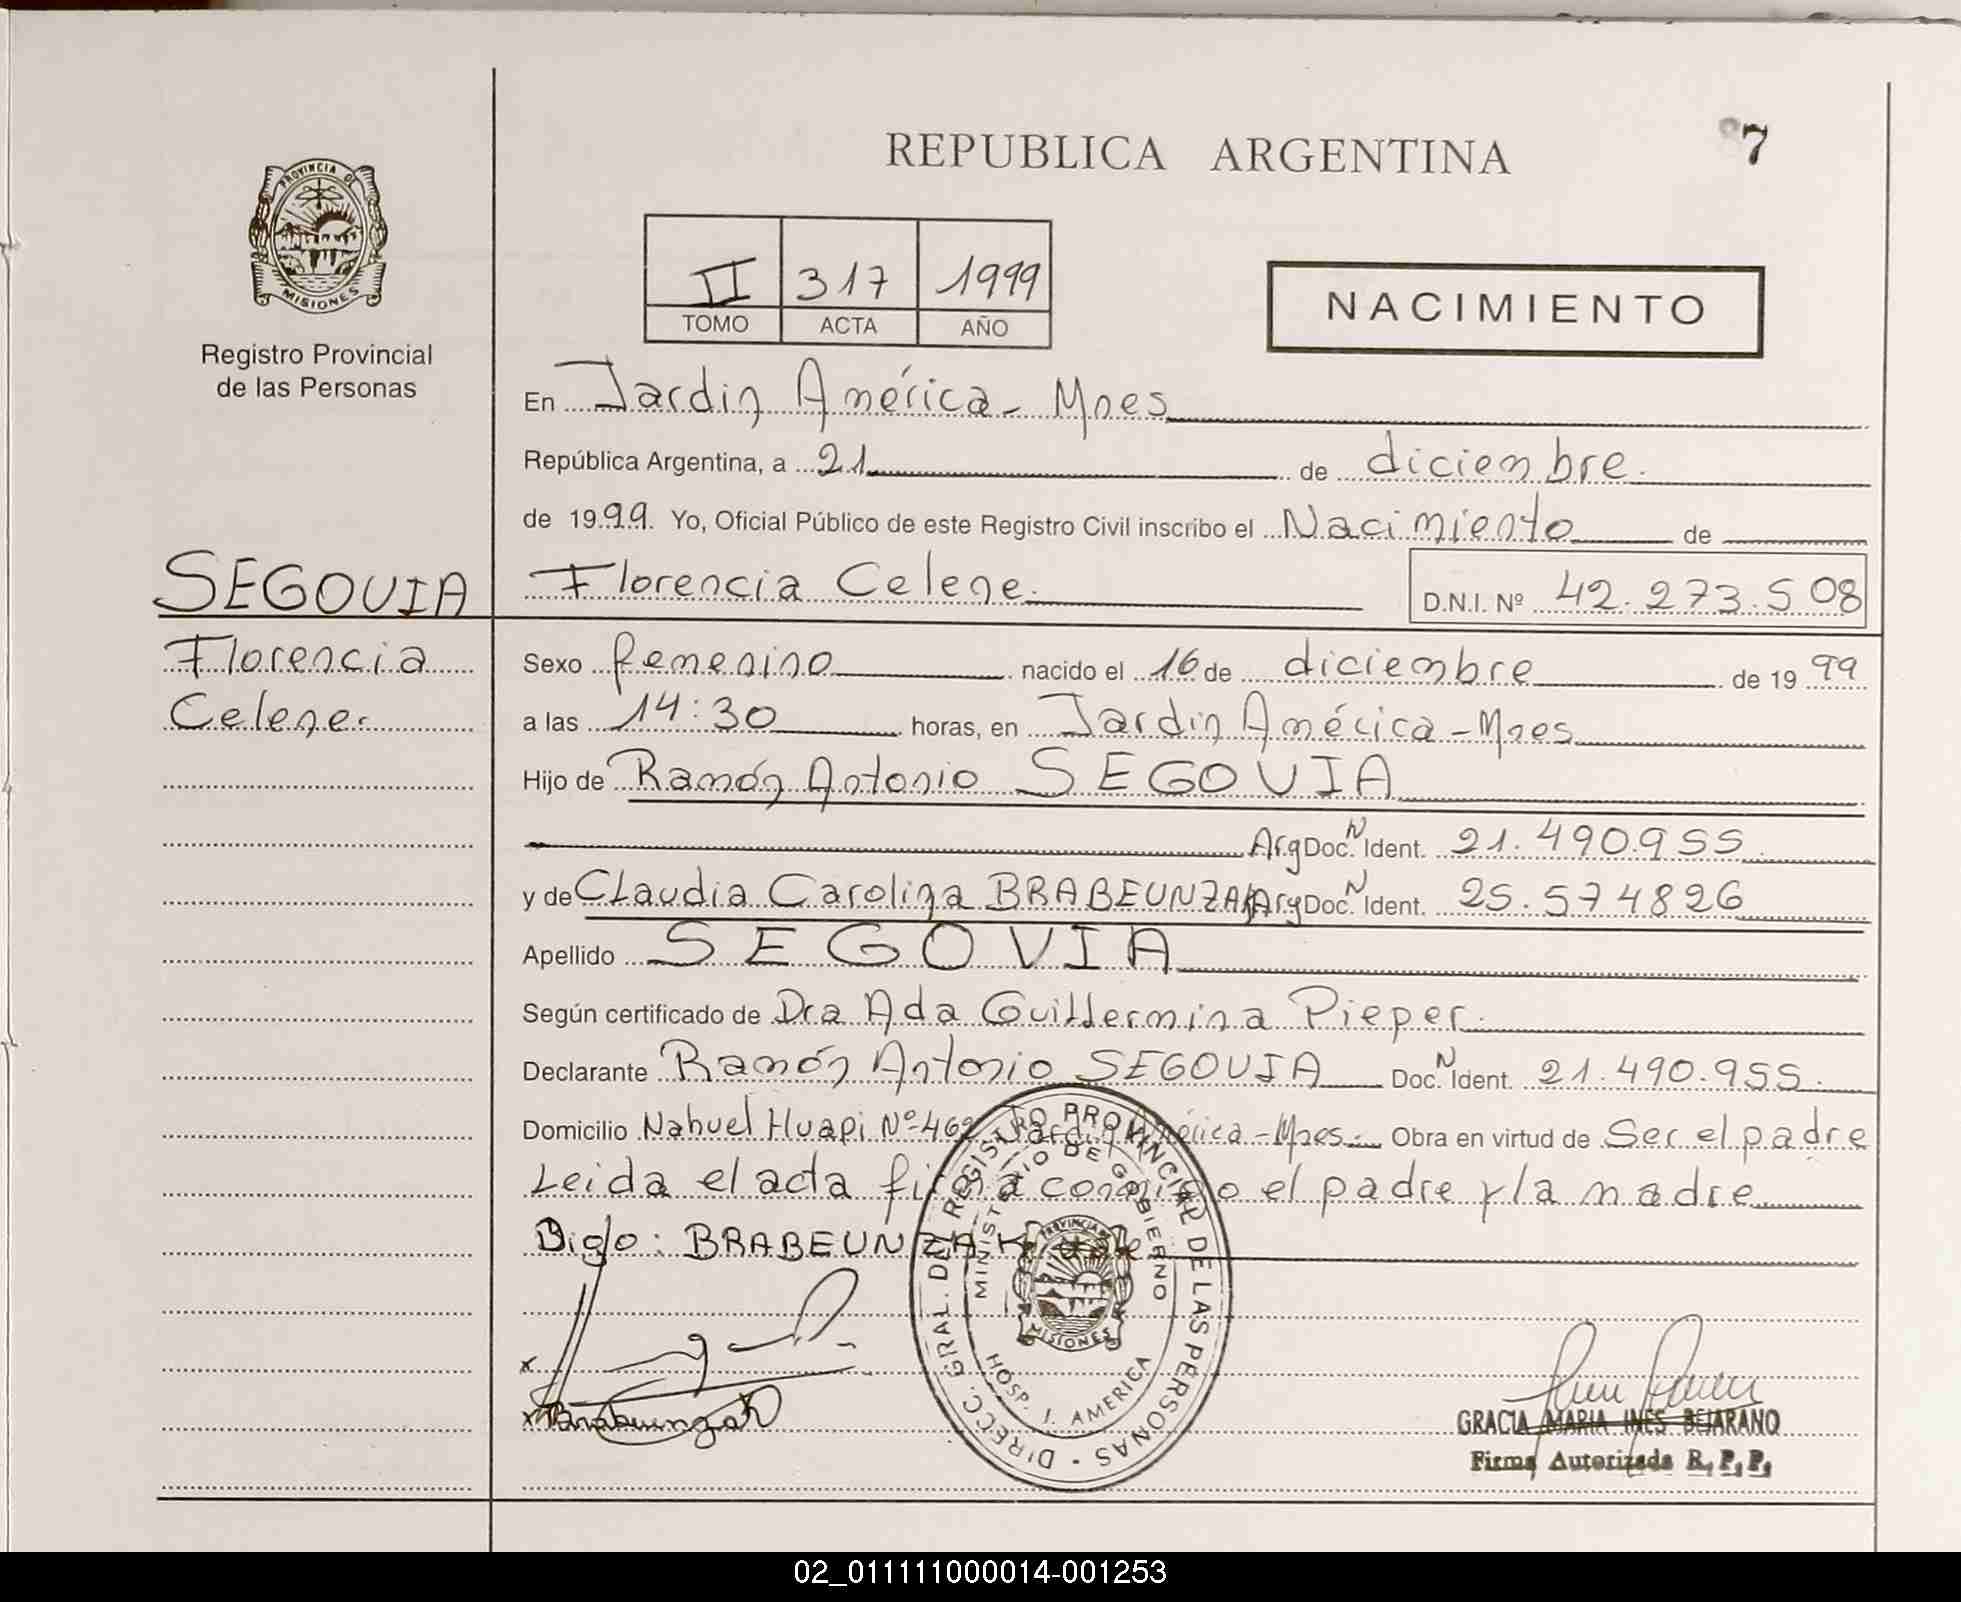 REPUBLICA ARGENTINA
7
PROVINCIA DE
MISIONES
Registro Provincial
de las Personas
II 317 1999
TOMO ACTA AÑO
NACIMIENTO
En Jardin América - Mnes
República Argentina, a 21 de diciembre.
de 1999. Yo, Oficial Público de este Registro Civil inscribo el Nacimiento de
SEGOVIA
Florencia
Celene.
Florencia Celene. D.N.I. Nº 42.273.508
Sexo femenino nacido el 16 de diciembre de 1999
a las 14:30 horas, en Jardin América - Mnes
Hijo de Ramón Antonio SEGOVIA
Arg Doc. N Ident. 21.490.955
y de Claudia Carolina BRABEUNZAK Arg Doc. N Ident. 25.574826
Apellido SEGOVIA
Según certificado de Dra Ada Guillermina Pieper.
Declarante Ramón Antonio SEGOVIA Doc. N Ident. 21.490.955.
Domicilio Nahuel Huapi Nº 462 Jardin América - Mnes. Obra en virtud de Ser el padre
Leida el acta firma conmigo el padre y la madre
Digo: BRABEUNZAK
DIRECC. GRAL. DEL REGISTRO PROVINCIAL DE LAS PERSONAS
MINISTERIO DE GOBIERNO
PROVINCIA
MISIONES
HOSP. J. AMERICA
x
x Brabeunzak
GRACIA MARIA INES BEJARANO
Firma Autorizada R.P.P.
02_011111000014-001253